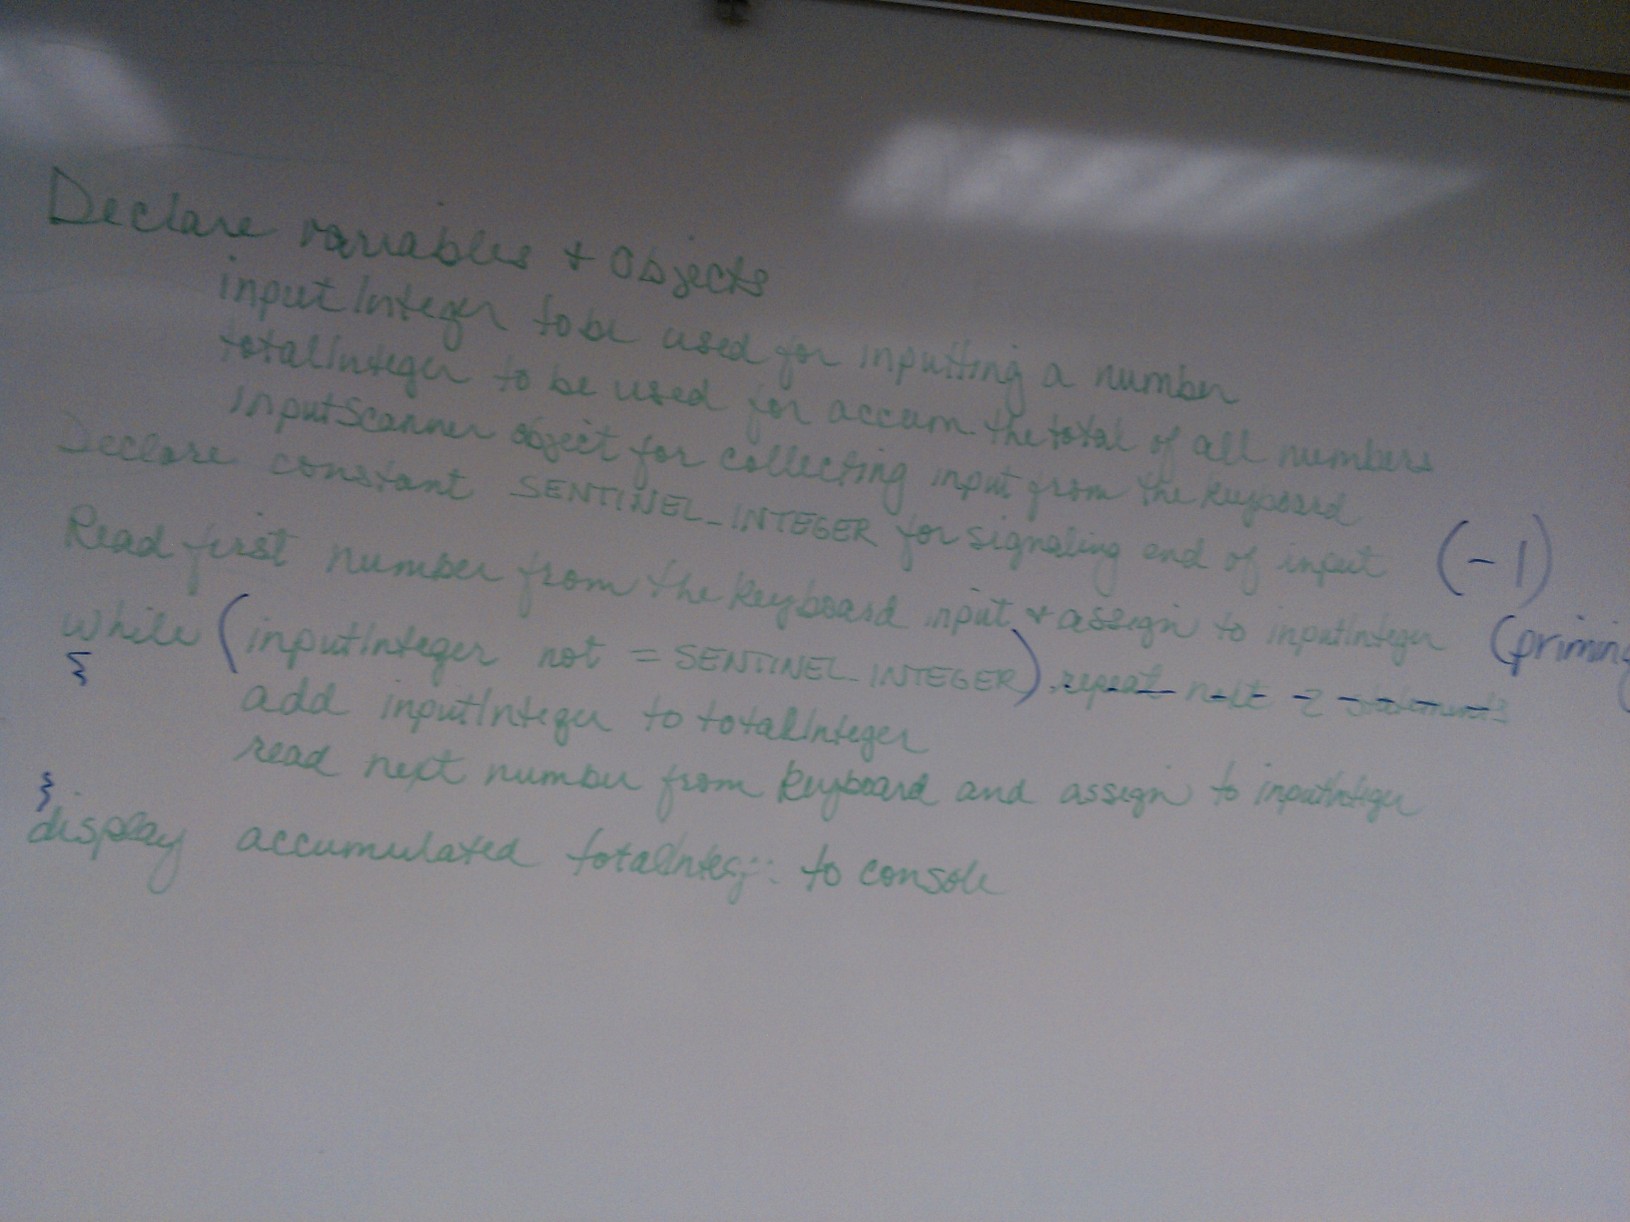 Declare variables + Objects
inputInteger to be used for inputting a number
totalInteger to be used for accum. the total of all numbers
inputScanner object for collecting input from the keyboard
Declare constant SENTINEL_INTEGER for signaling end of input (-1)
Read first number from the keyboard input + assign to inputInteger (priming
while (inputInteger not = SENTINEL_INTEGER), repeat next 2 statements
{
add inputInteger to totalInteger
read next number from keyboard and assign to inputInteger
}
display accumulated totalInteg to console